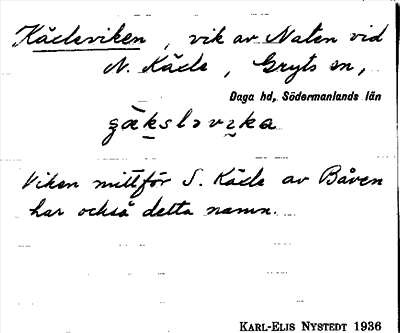 Käcleviken, vik av Naten vid
N. Käcle, Gryts sn,
Daga hd, Södermanlands län
Viken mittför S. Käcle av Båven
har också detta namn.
KARL-ELIS NYSTEDT 1936